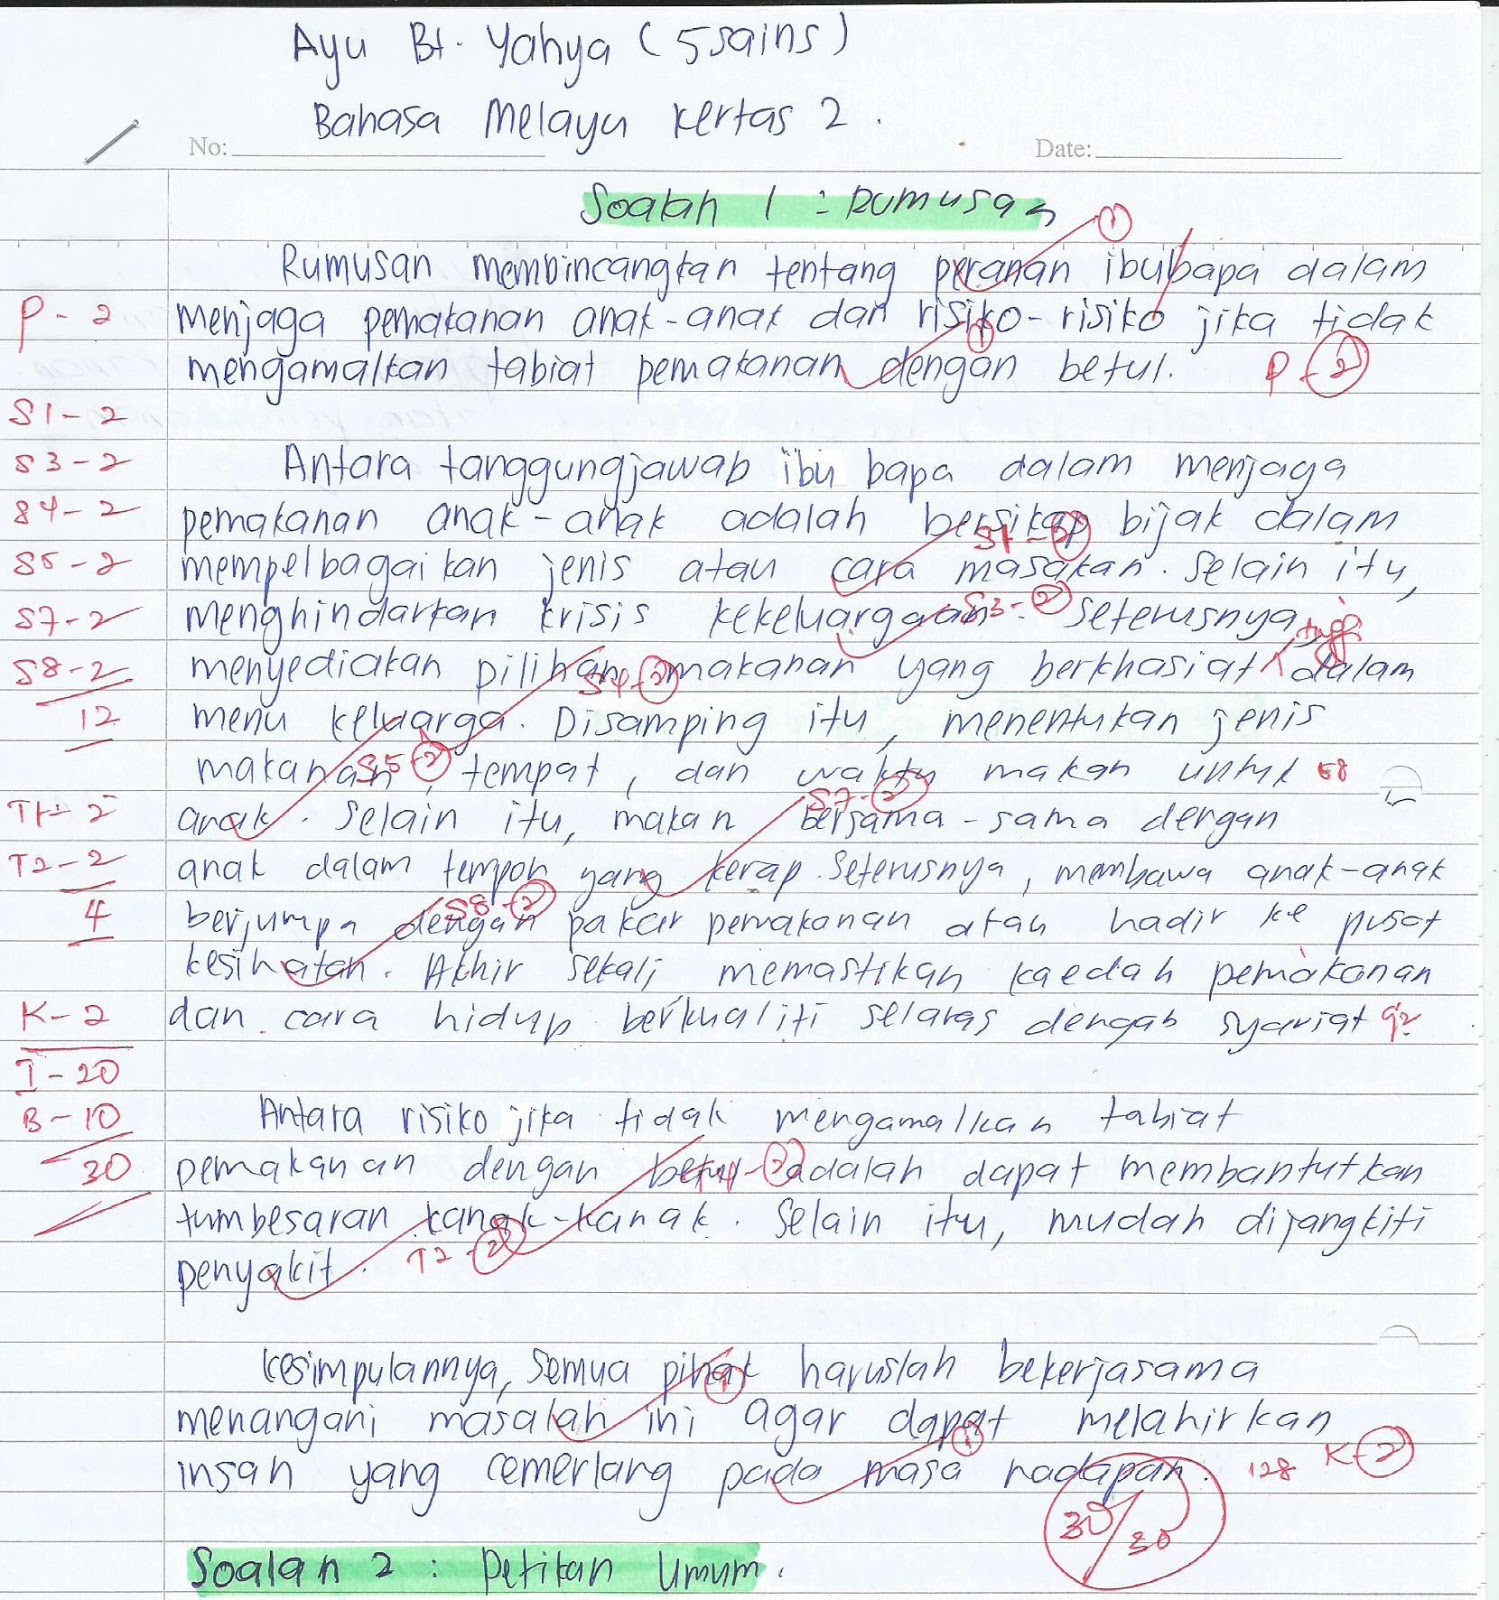 Ayu Bt. Yahya (5 sains)
Bahasa Melayu Kertas 2.
No:
Date:
Soalan 1 : Rumusan
1
Rumusan membincangkan tentang peranan ibubapa dalam
P - 2 menjaga pemakanan anak-anak dan risiko-risiko jika tidak
1
mengamalkan tabiat pemakanan dengan betul. P-2
S1-2
S3-2 Antara tanggungjawab ibu bapa dalam menjaga
S4-2 pemakanan anak-anak adalah bersikap bijak dalam
S1-2
S5-2 mempelbagaikan jenis atau cara masakan. Selain itu,
S7-2 menghindarkan krisis kekeluargaan. S3-2 Seterusnya,
tinggi
S8-2 menyediakan pilihan makanan yang berkhasiat dalam
S4-2
12 menu keluarga. Disamping itu, menentukan jenis
makanan, tempat, dan waktu makan untuk 68
S5-2
T1-2 anak. Selain itu, makan bersama-sama dengan
S7-2
T2-2 anak dalam tempoh yang kerap. Seterusnya, membawa anak-anak
S8-2
4 berjumpa dengan pakar pemakanan atau hadir ke pusat
kesihatan. Akhir sekali memastikan kaedah pemakanan
K-2 dan cara hidup berkualiti selaras dengab syariat 92
I-20
B-10 Antara risiko jika tidak mengamalkan tabiat
30 pemakanan dengan betul adalah dapat membantutkan
tumbesaran kanak-kanak. Selain itu, mudah dijangkiti
penyakit. T2-2
Kesimpulannya, semua pihak haruslah bekerjasama
1
menangani masalah ini agar dapat melahirkan
1
insan yang cemerlang pada masa hadapan. 128 K-2
30/30
Soalan 2 : Petikan Umum.